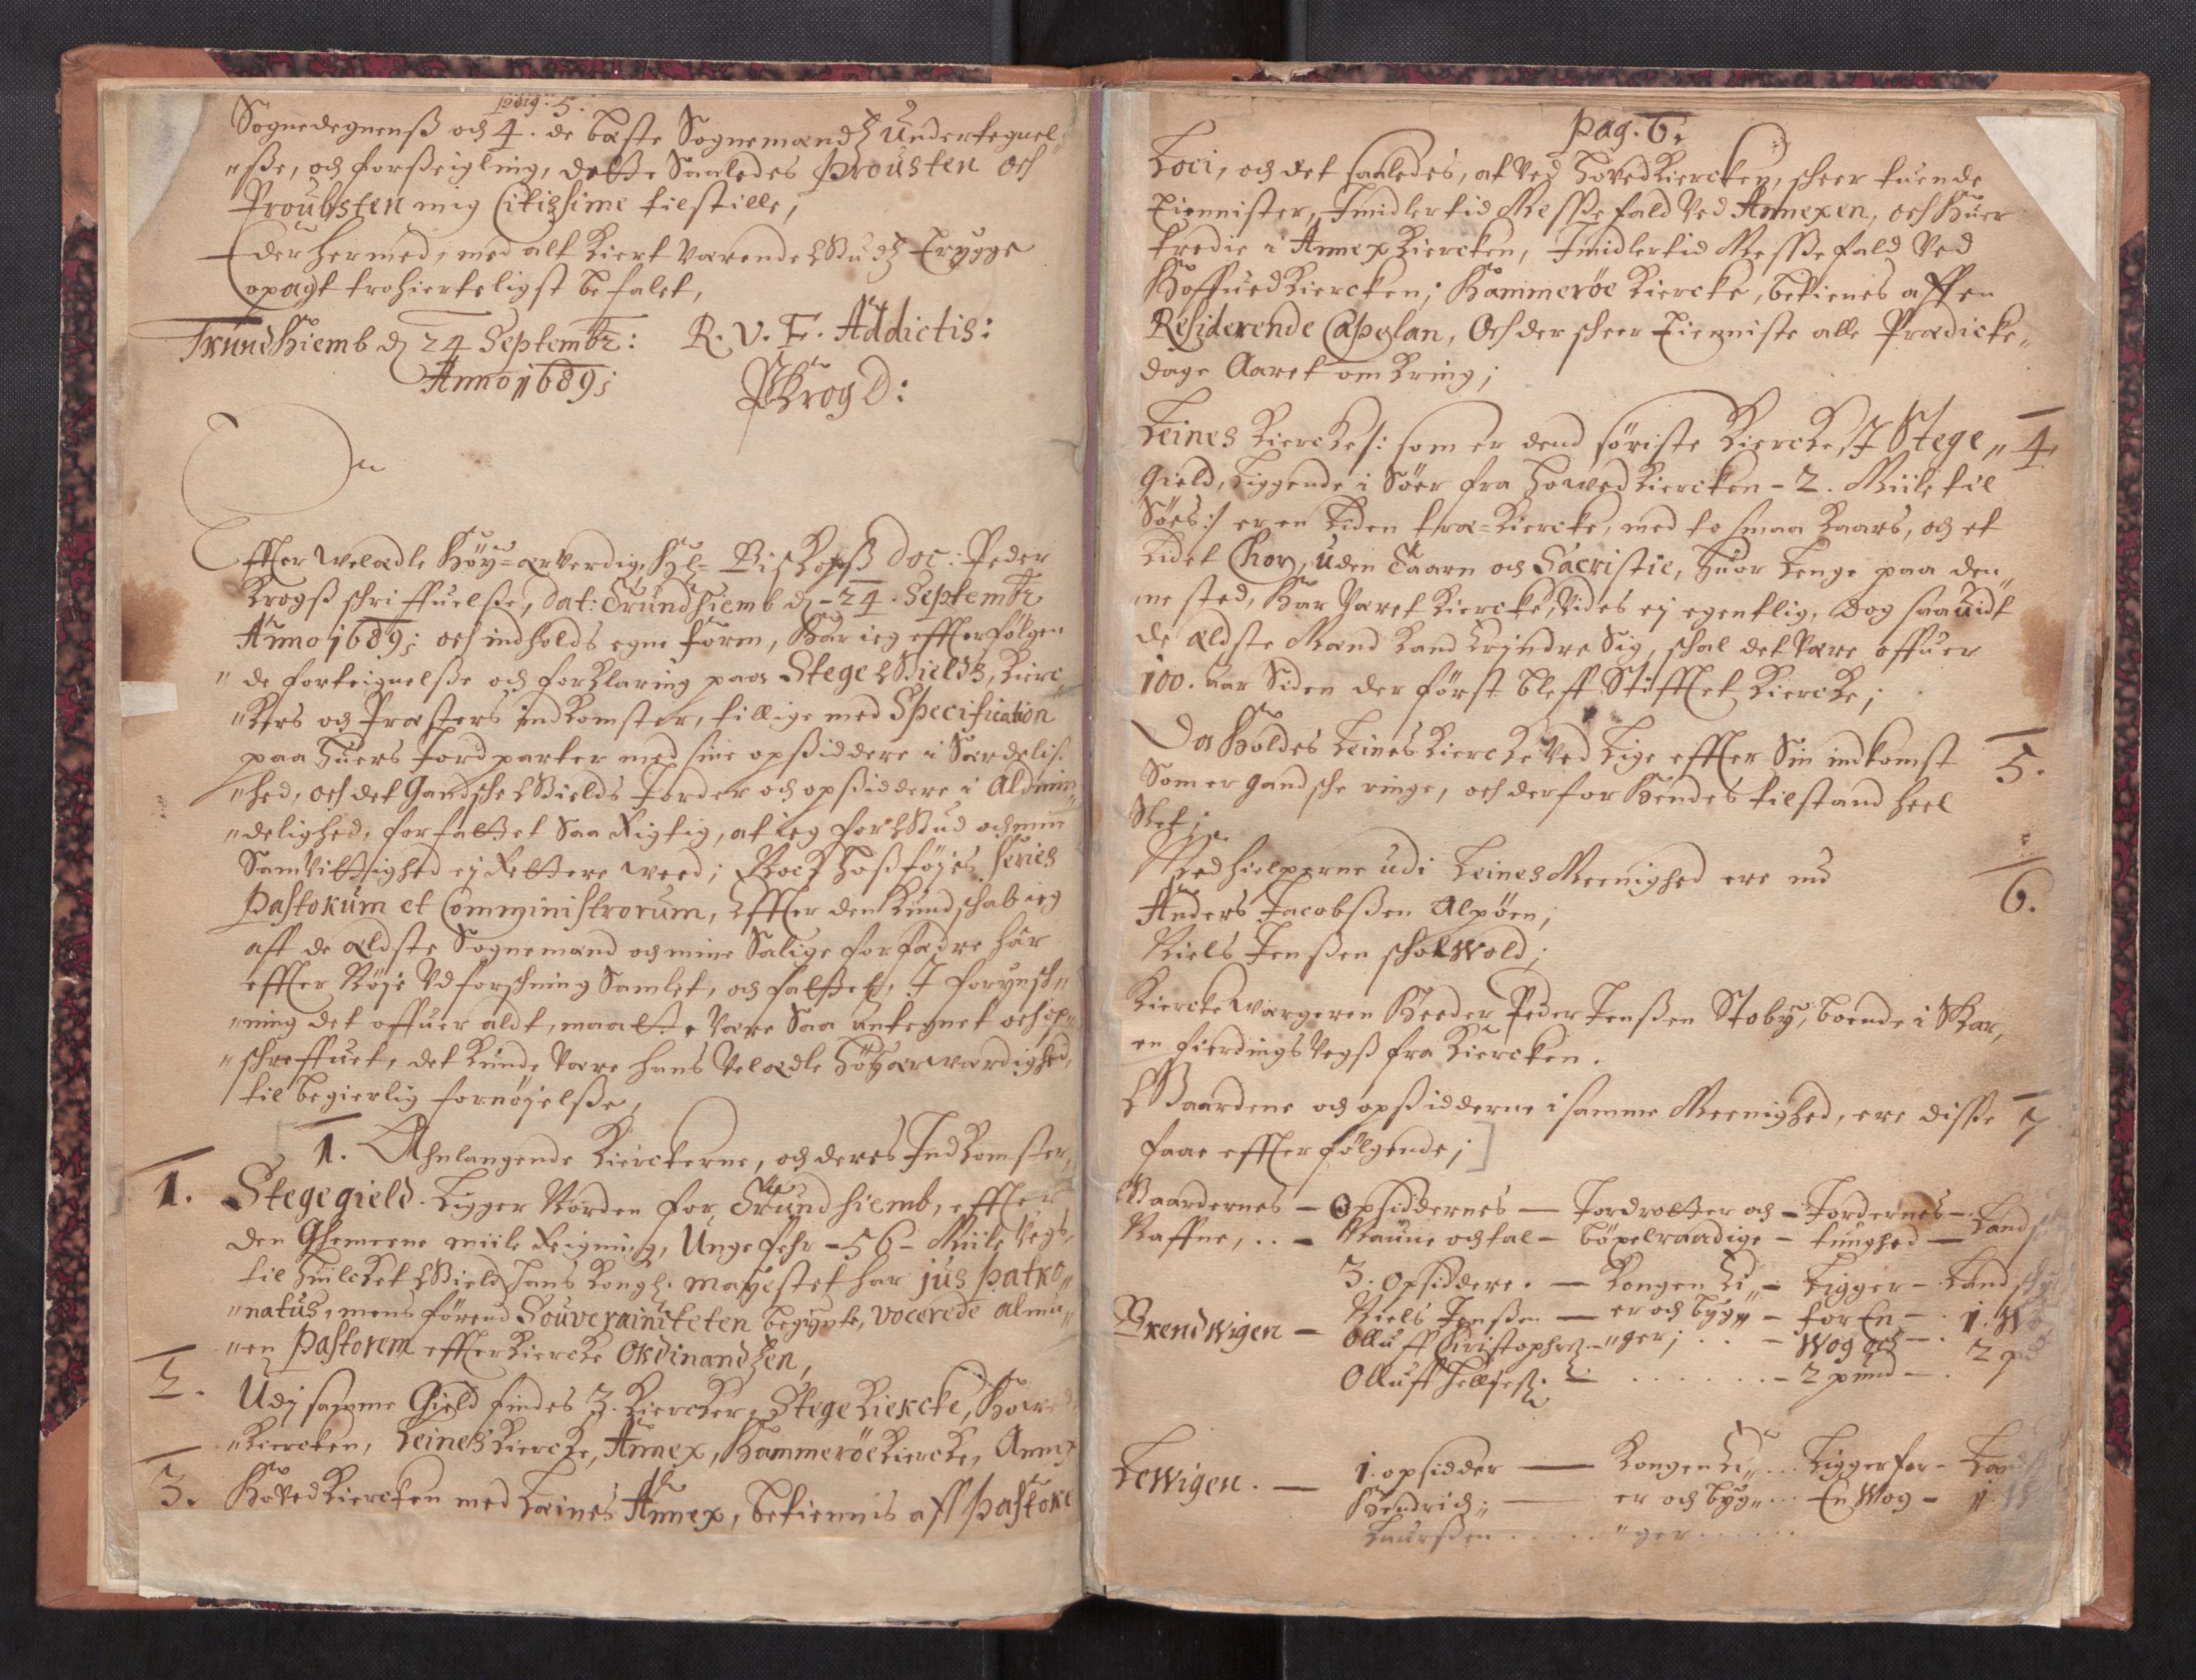 pag. 5.
Sognedegnenß och 4. de bæste Sognemænds Undertegnel„
„sße, och forßeigling, dette Saaledes prousten och
Proubsten mig Citissime tilstille,
Eder hermed, med alt kiert værende Guds trygge
opagt trohierteligst befalet,
Trundhiemb d 24 Septembr: R. V. F. Addictis:
Anno 1689; PKrog D:
Effter Welædle Höy-ærverdig, Hr Biskopß Doc: Peder
Krogß schriffuelße, dat: Trundhiemb d - 24. Septembr
Anno 1689; och indholds egne form, Har ieg effterfölgen
„de forteignelße och forklaring paa Stege Gields, kierc„
„kers och Præsters indkomster, tillige med Specification
paa huers Jordparter med sine opßiddere i Særdelis„
„hed, och det Gandsche Gields Jorder och opßiddere i Almin„
„delighed, forfattet Saa Rigtig, at ieg for Gud och min
Samvittighed ej Rettere weed; Nock hoßföjes series
pastorum et Comministrorum, Effter den Kundschab ieg
aff de ældste Sognemænd och mine Salige forfædre har
effter Nöje Udforschning Samlet, och fattet, I forönsch„
„ning det offuer aldt, maatte være Saa antegnet och op„
„schreffuet, det kunde være hans Velædle Höyærværdighed,
til begierlig fornöjelße,
1. Anlangende Kierckerne, och deres Indkomster,
1. Stegegield. Ligger Norden for Trundhiemb, effter
den Ghemeene miile Reigning, Ungefehr - 56 - Miile Vegs,
til huilcket Gield hans Kongl. mayestet har jus patro„
„natus, mens förend Souverainiteten begynte, vocerede almu„
„en Pastorem effter Kiercke Ordinandzen,
2. Udj samme Gield findes 3. kiercker, Stege Kiercke, Hoved
„kiercken, Leines Kiercke, Annex, Hammeröe Kiercke, Annex
3. Hoved Kiercken med Leines Annex, betiennis aff Pastore
pag. 6.
Loci, och det saaledes, at Ved Hoved Kiercken, scheer tuende
tiennister, Imidlertid Messefald Ved Annexen, och huer
tredie i Annex Kiercken, Imidlertid Messefald Ved
Hoffued Kiercken; Hammeröe Kiercke, betienes aff en
Residerende Capeslan, Och der scheer tienniste alle Prædicke„
dage Aaret omkring;
Leines Kiercke /: som er dend söriste Kiercke, I Stege„ 4.
Gield, Liggende i Söer fra Hovedkiercken - 2. Miile til
Söes :/ er en Liden træ-kiercke, med to smaa kaars, och et
Lidet Chor, uden Taarn och Sacristie, huor Lenge paa den„
„ne sted, har Været Kiercke, Vides ej egentlig, dog saauidt
de ældste Mænd kand Erindre Sig, schal det Være offuer
100. aar Siden der först bleff Stifftet Kiercke;
Da holdes Leines Kiercke Ved Lige effter Sin indkomst 5.
Som er gandsche ringe, och derfor hendes tilstand heel
Slet;
Medhielperne udi Leines Meenighed ere nu 6.
Anders Jacobsßen Alpöen,
Niels Jensßen scholwold;
Kierckewærgeren heeder Peder Jensßen Stoby, boende i Skar,
en fierdings Vegß fra Kiercken.
Gaardene och opßidderne i samme Meenighed, ere disse 7
faae effterfölgende;
Gaardernes — Opsiddernes — Jordrotter och — Jordernes — Lands
Naffne, .. — Naune och tal — böxelraadige — tunghed —
3. Opsiddere. — Kongen Ei„ — Ligger — Landschyl
Brendwigen — Niels Jensßen — er och byg„ — for En — . 1. Wo
Olluff Christophers — „ger; . . — Wog och — . 2 pd
Olluff Hellies: — . . . . . . — 2 pund — .
Lewigen. — 1. opsidder — Kongen Ei„ ... Ligger for — Lands
Hendrich; — er och byg„ ... En Wog — 1 W
Laursßen ..... „ger ......